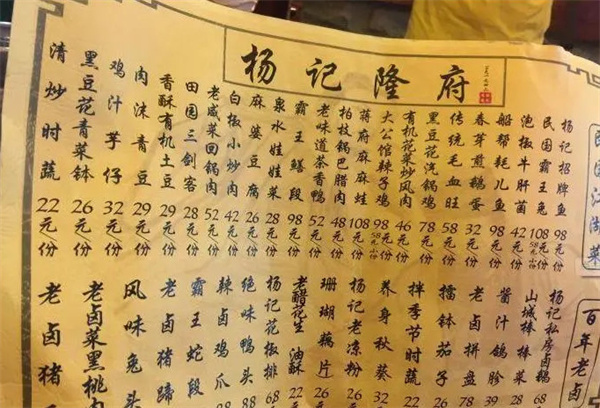 杨记隆府
民国江湖菜
杨记招牌鱼 98元/份
民国霸王兔 108元/份 58元小份
泡椒牛肝菌 42元/份
船帮耗儿鱼 98元/份
春芽煎鹅蛋 32元/份
传统毛血旺 58元/份
黑豆花汽锅鸡 78元/份
有机花菜炒风肉 46元/份
大公馆辣子鸡 58元小份
蒋府麻麻蛙 108元/份
柏枝锅巴腊肉 48元/份
老味道茶香鸭 52元/份
霸王鳝段 98元/份
泉水娃娃菜 28元/份
麻婆豆腐 26元/份
白椒小炒肉 42元/份
老咸菜回锅肉 52元/份
田园三剑客 28元/份
香酥有机土豆 29元/份
肉沫青豆 29元/份
鸡汁芋仔 32元/份
黑豆花青菜钵 26元/份
清炒时蔬 22元/份
百年老卤
杨记私房卤鹅 68
山城棒棒菜 28
酱汁鸽胗 39
老卤拼盘 78
擂钵茄子
拌季节时蔬 22
养身秋葵 32
杨记老凉粉
珊瑚藕片
老醋花生 油酥
杨记花椒排 68
绝味鸭头
辣卤鸡爪
霸王蛇段
老卤猪蹄
风味兔头
老卤菜黑桃肉
老卤猪